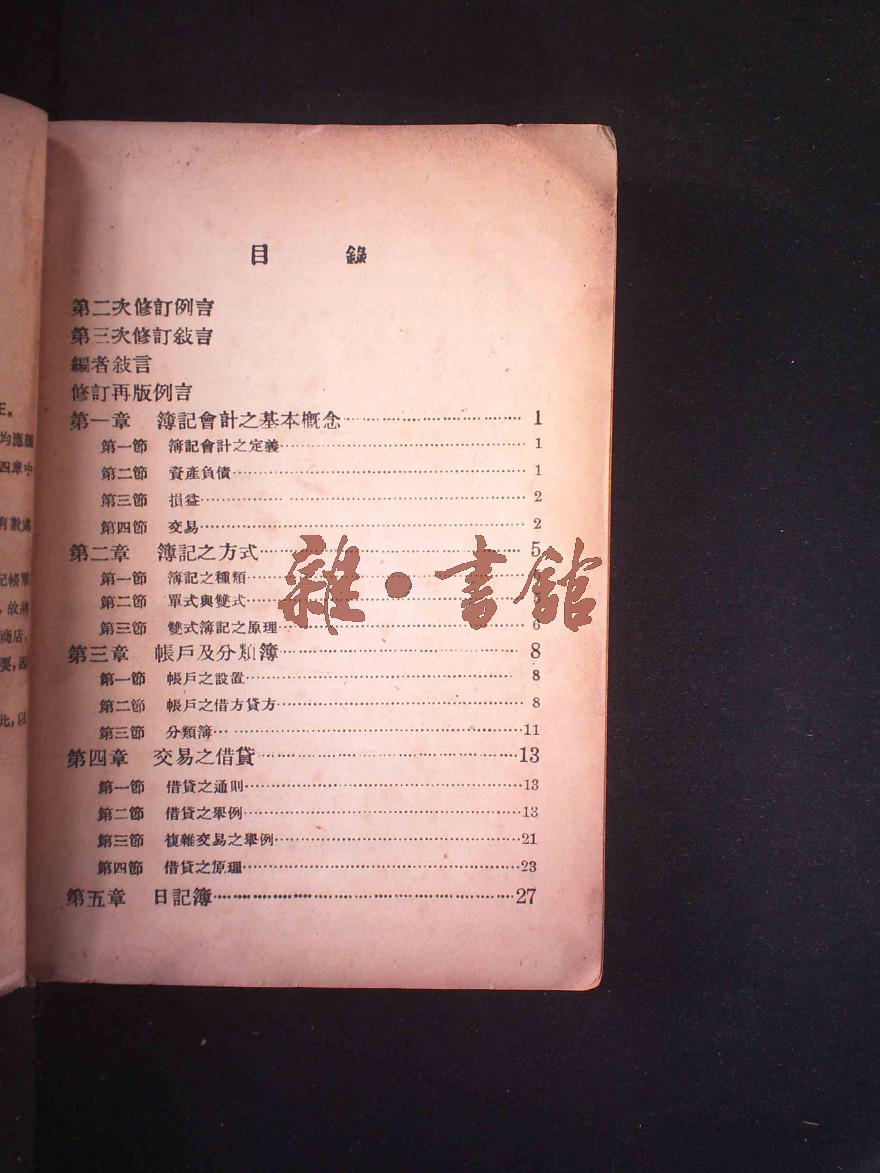 目 錄
第二次修訂例言
第三次修訂敍言
編者敍言
修訂再版例言
第一章 簿記會計之基本概念 1
第一節 簿記會計之定義 1
第二節 資產負債 1
第三節 損益 2
第四節 交易 2
第二章 簿記之方式 5
第一節 簿記之種類
第二節 單式與雙式
第三節 雙式簿記之原理 6
第三章 帳戶及分類簿 8
第一節 帳戶之設置 8
第二節 帳戶之借方貸方 8
第三節 分類簿 11
第四章 交易之借貸 13
第一節 借貸之通則 13
第二節 借貸之舉例 13
第三節 複雜交易之舉例 21
第四節 借貸之原理 23
第五章 日記簿 27
雜·書館
均應
四章中
有數處
記帳單
,故將
商店,
要,因
此,以